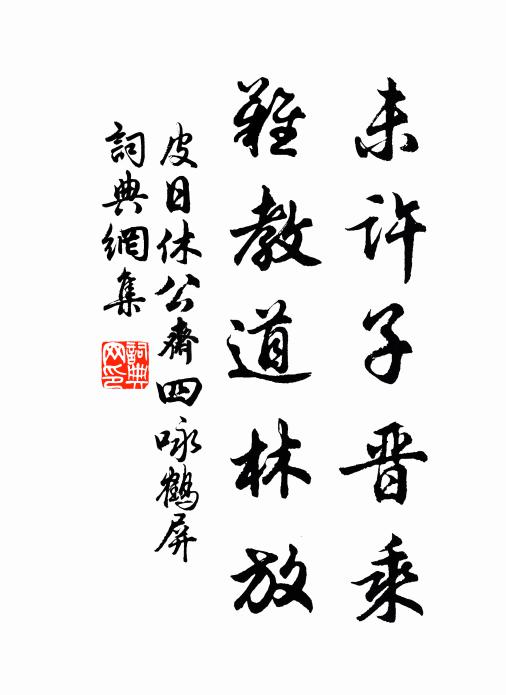 未許子晋乘
難教道林放
皮日休公齋四咏鶴屏
詞典網集
詞典网印